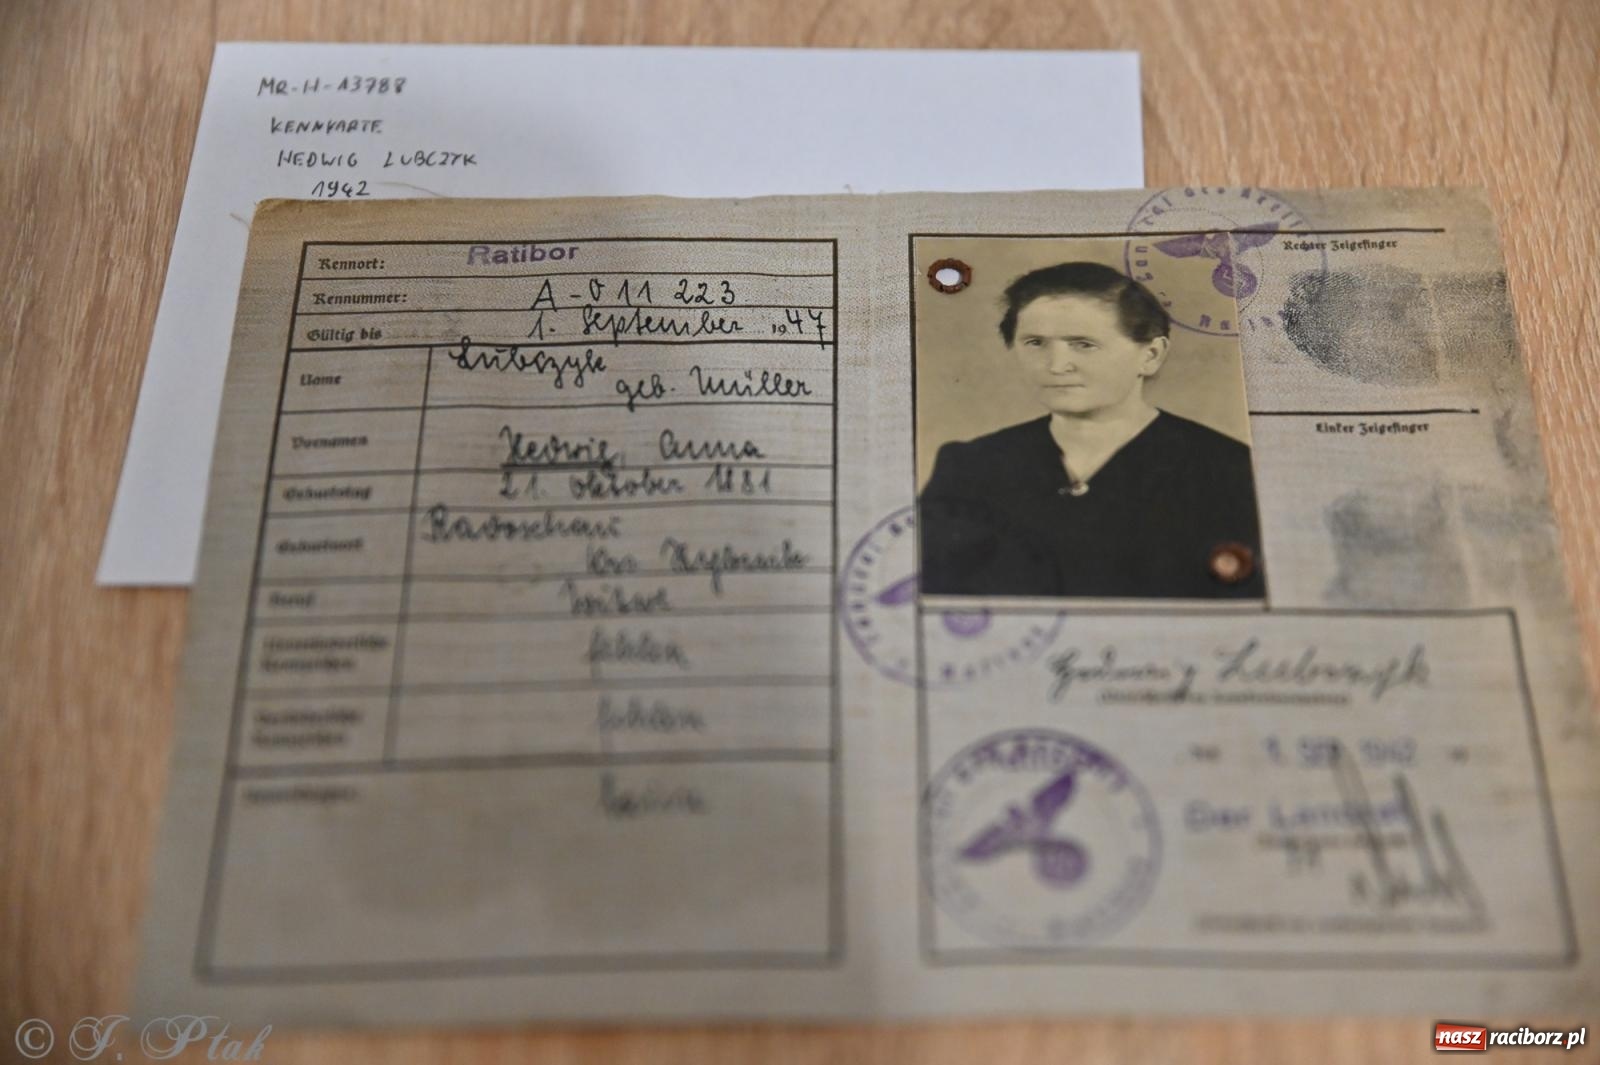 MR-H-13788
KENNKARTE
HEDWIG LUBCZYK
1942
Kennort: Ratibor
Kennummer: A-011 223
Gültig bis 1. September 1947
Name Lubczyk
geb. Müller
Vornamen Hedwig, Anna
Geburtstag 21. Oktober 1881
Geburtsort Radoschau
Beruf
fehlen
fehlen
keine
Rechter Zeigefinger
Linker Zeigefinger
Hedwig Lubczyk
1. SEP. 1942
Der Landrat
© J. Ptak
nasz raciborz.pl